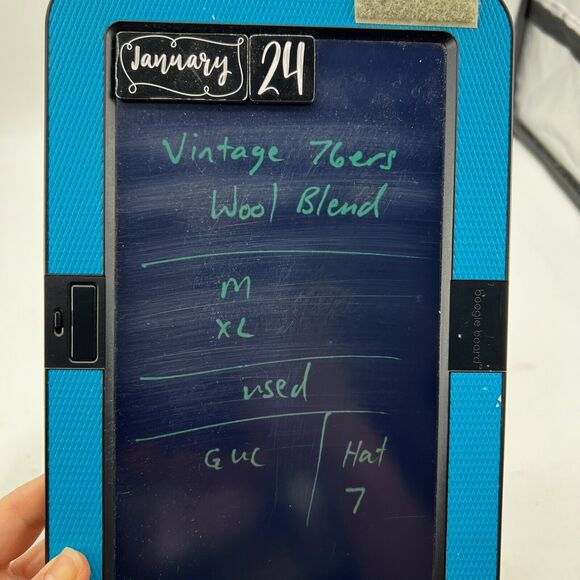 January 24
Vintage 76ers
Wool Blend
M
XL
used
GUC
Hat
7
boogie board